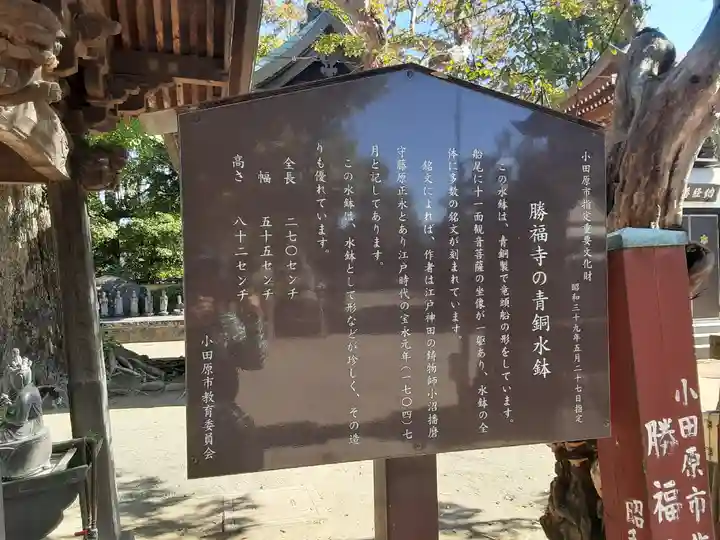 小田原市指定重要文化財
昭和三十九年五月二十七日指定
勝福寺の青銅水鉢
この水鉢は、青銅製で竜頭船の形をしています。
船尾に十一面観音菩薩の坐像が一躯あり、水鉢の全
体に多数の銘文が刻まれています。
銘文によれば、作者は江戸神田の鋳物師小沼播磨
守藤原正永とあり江戸時代の宝永元年(一七〇四)七
月と記してあります。
この水鉢は、水鉢として形などが珍しく、その造
りも優れています。
全長 二七〇センチ
幅 五十五センチ
高さ 八十二センチ
小田原市教育委員会
小田原市
勝福
昭